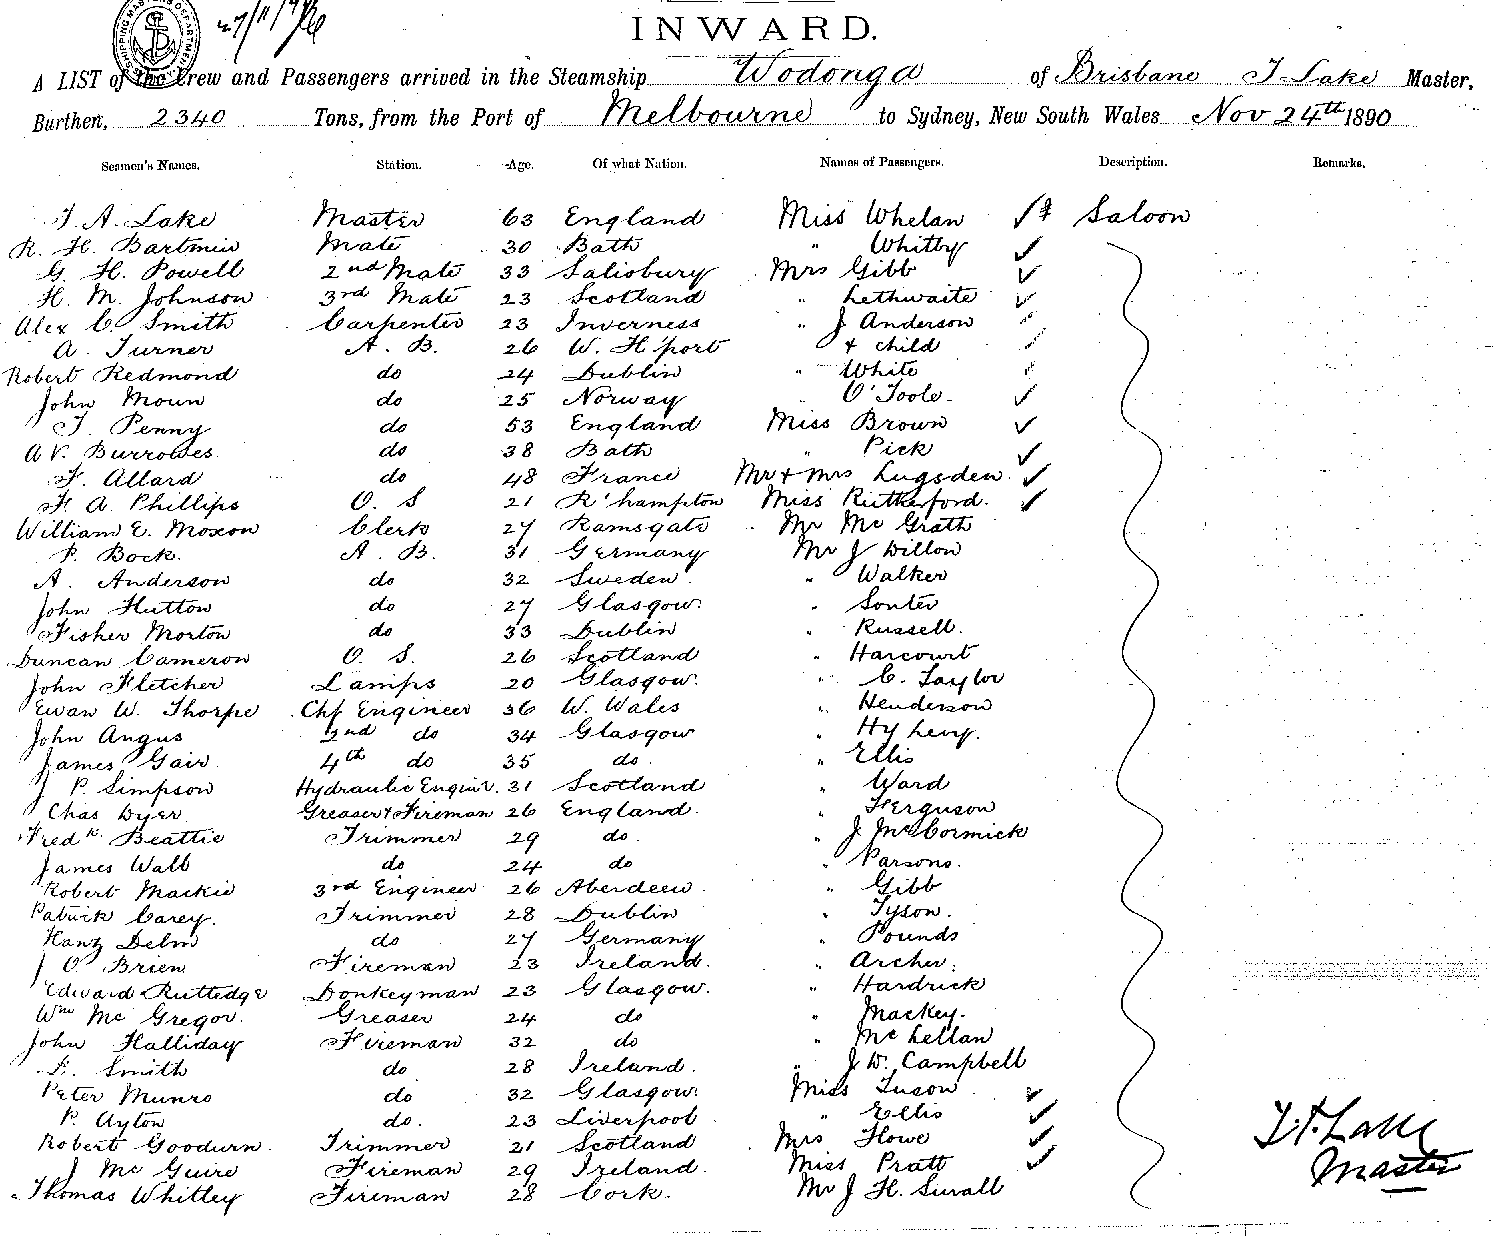 SHIPPING MASTERS DEPARTMENT
27/11/96
INWARD.
A LIST of the Crew and Passengers arrived in the Steamship Wodonga of Brisbane T Lake Master,
Burthen, 2340 Tons, from the Port of Melbourne to Sydney, New South Wales Nov 24th 1890
Seamen's Names. Station. Age. Of what Nation. Names of Passengers. Description. Remarks.
T A. Lake Master 63 England Miss Whelan Saloon
R. H. Bartmin Mate 30 Bath " Whitby
G H. Powell 2nd Mate 33 Salisbury Mrs Gibb
H. M. Johnson 3rd Mate 23 Scotland " Lethwaite
Alex C. Smith Carpenter 23 Inverness " J Anderson
A. Turner A. B. 26 W. H'port + child
Robert Redmond do 24 Dublin " White
John Moun do 25 Norway " O'Toole
T. Penny do 53 England Miss Brown
A V. Burrowes do 38 Bath " Pick
F. Allard do 48 France Mr + Mrs Lugsden
F. A. Phillips O. S 21 R'hampton Miss Rutherford.
William E. Moxon Clerk 27 Ramsgate Mr Mc Grath
P. Bock. A. B. 31 Germany Mr J Dillon
A. Anderson do 32 Sweden " Walker
John Hutton do 27 Glasgow " Souter
Fisher Morton do 33 Dublin " Russell.
Duncan Cameron O. S. 26 Scotland " Harcourt
John Fletcher Lamps 20 Glasgow. " C. Taylor
Ewan W. Thorpe Chf Engineer 36 W. Wales " Henderson
John Angus 2nd do 34 Glasgow " Hy Levy.
James Gair 4th do 35 do " Ellis
J P. Simpson Hydraulic Enginr. 31 Scotland " Ward
Chas Dyer Greaser + Fireman 26 England. " Ferguson
Fredk Beattie Trimmer 29 do " J McCormick
James Wall do 24 do " Parsons.
Robert Mackie 3rd Engineer 26 Aberdeen " Gibb
Patrick Carey. Trimmer 28 Dublin " Tyson.
Hanz Delm do 27 Germany " Pounds
J O'Brien Fireman 23 Ireland. " Archer.
Edward Ruttedge Donkeyman 23 Glasgow. " Hardrick
Wm Mc Gregor. Greaser 24 do " Mackey.
John Halliday Fireman 32 do " Mc Lellan
Smith do 28 Ireland. " J. W. Campbell
Peter Munro do 32 Glasgow. Miss Tuson
P. Ayton do. 23 Liverpool " Ellis
Robert Goodurn. Trimmer 21 Scotland Mrs Howe
J Mc Guire Fireman 29 Ireland. Miss Pratt
Thomas Whitley Fireman 28 Cork. Mr J H. Surall
T A. Lake
Master